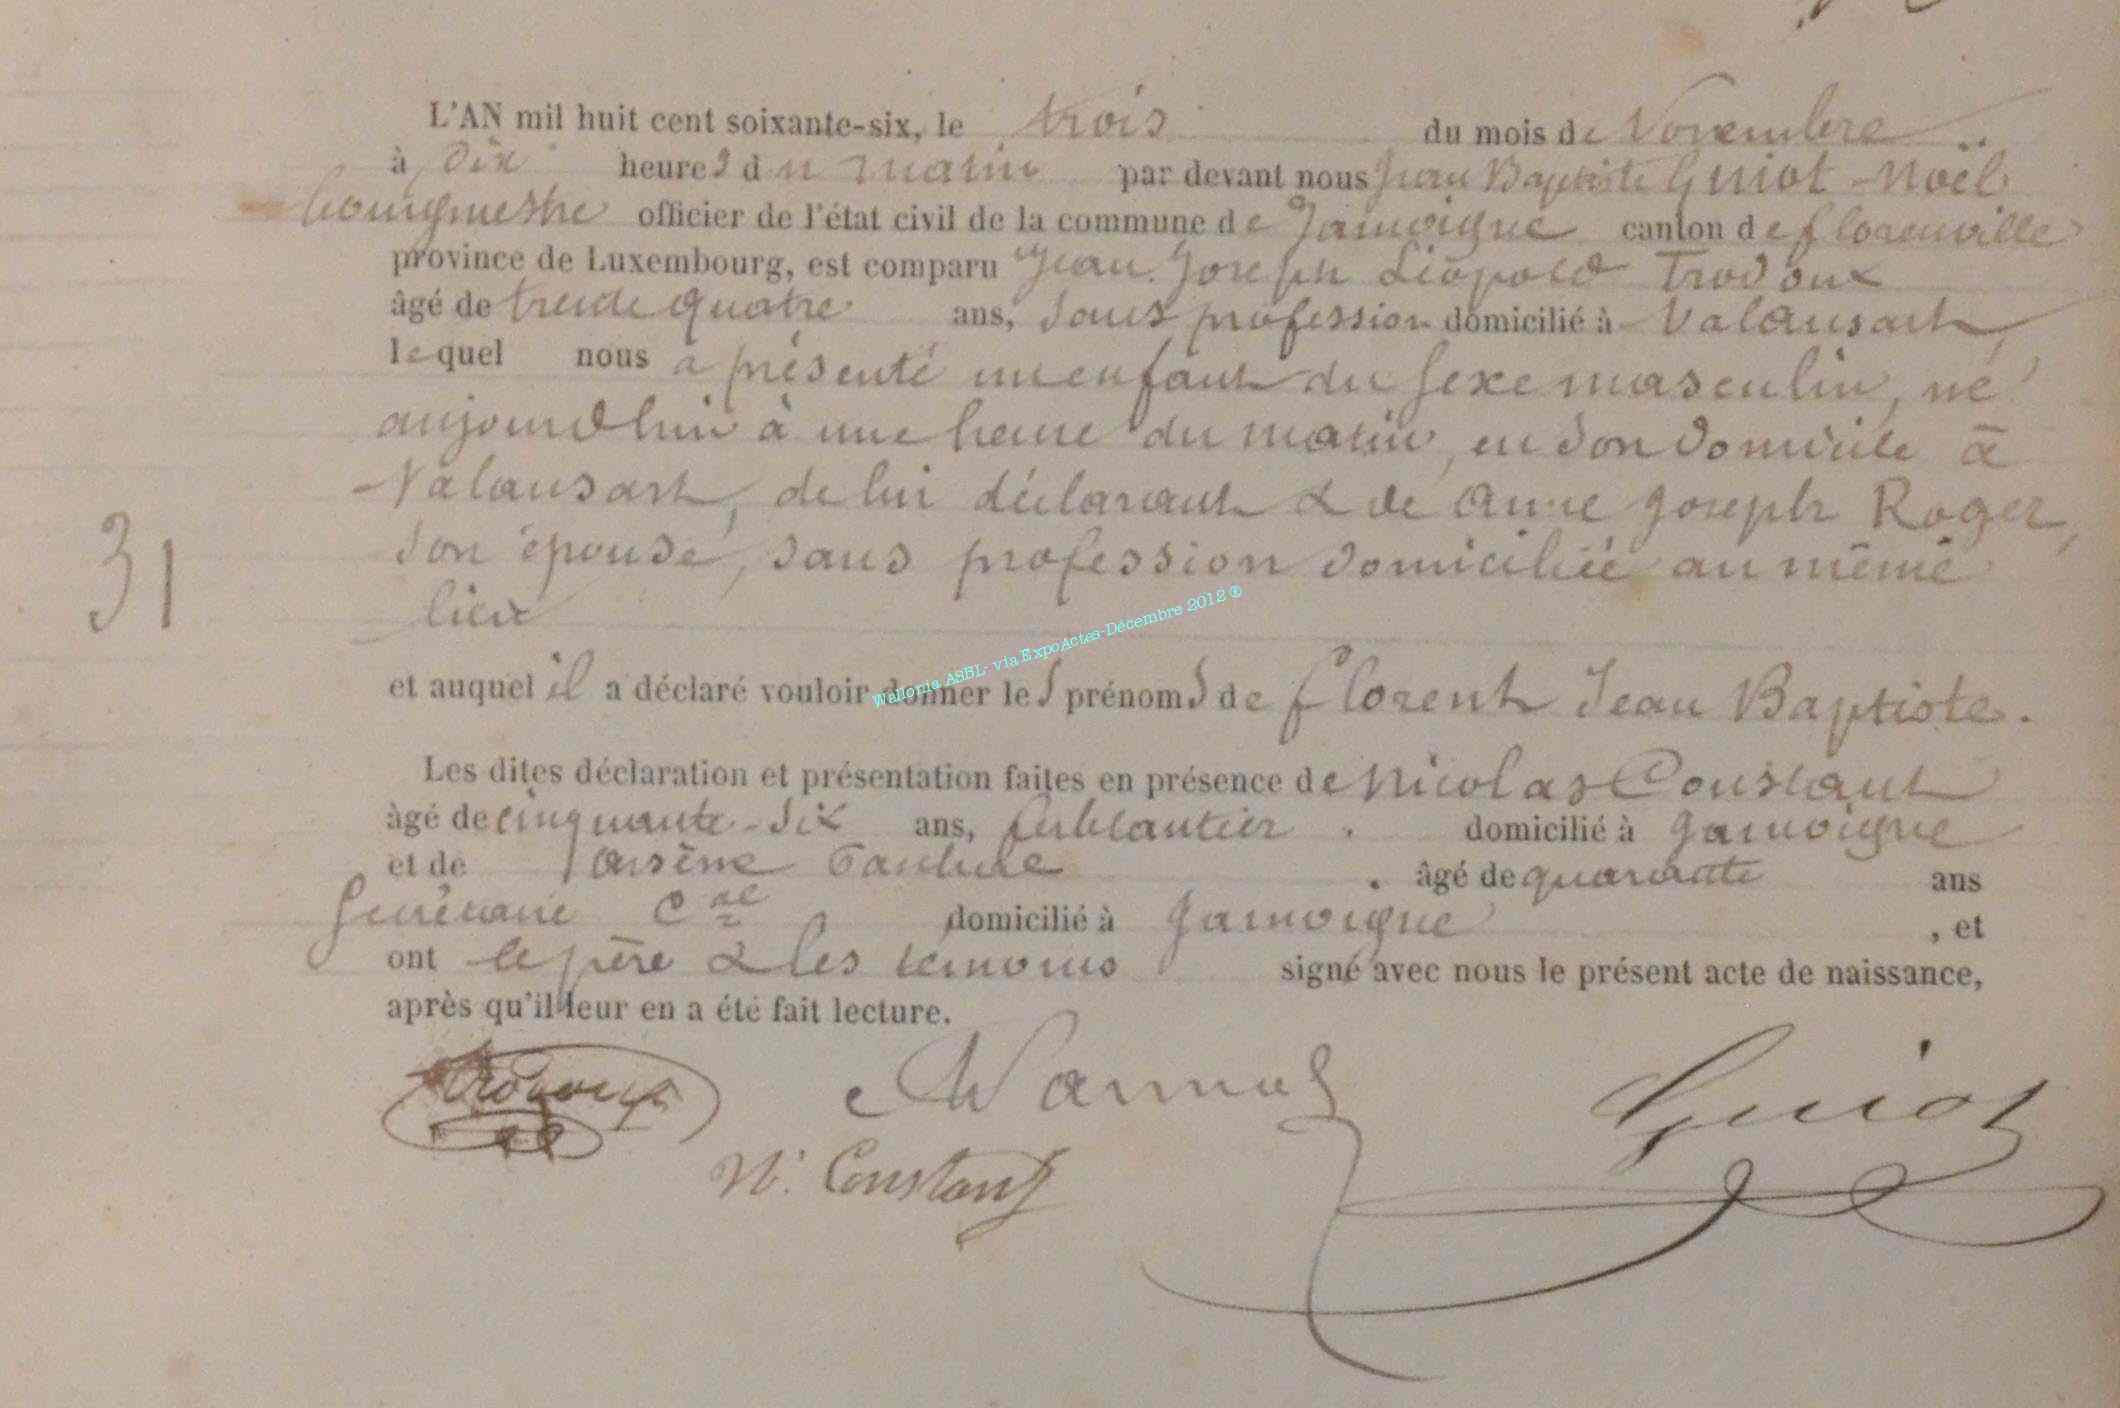 L'AN mil huit cent soixante-six, le trois du mois de Novembre
à dix heures du matin par devant nous Jean Baptiste Guiot-Noël
bourgmestre officier de l'état civil de la commune de Jamoigne canton de florenville
province de Luxembourg, est comparu Jean Joseph Léopold Trodoux
âgé de trente quatre ans, sans profession domicilié à Valansart,
lequel nous a présenté un enfant du sexe masculin, né
aujourdhui à une heure du matin, en son domicile à
Valansart, de lui déclarant & de Anne Joseph Roger,
son épouse, sans profession domiciliée au même
lieu
31
et auquel il a déclaré vouloir donner les prénoms de florent Jean Baptiste.
Wallonia ASBL- via ExpoActes-Décembre 2012 ®
Les dites déclaration et présentation faites en présence de Nicolas Constant
âgé de cinquante-six ans, ferblantier . domicilié à Jamoigne
et de arsène . âgé de quarante ans
Secrétaire Cal domicilié à Jamoigne , et
ont le père & les témoins signé avec nous le présent acte de naissance,
après qu'il leur en a été fait lecture.
Trodoux Guiot
N. Constant